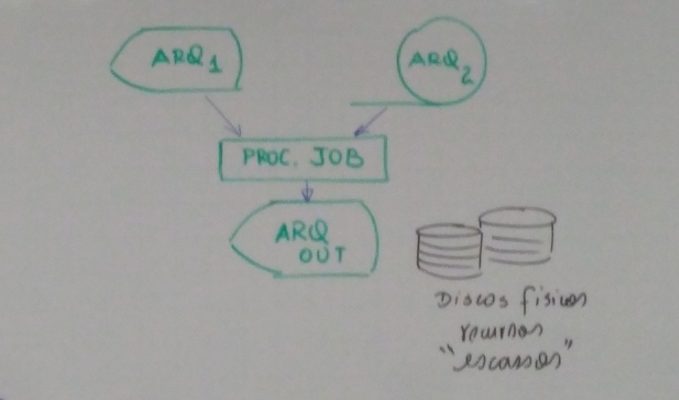 ARQ 1
ARQ 2
PROC. JOB
ARQ
OUT
Discos físicos
recursos
"escassos"